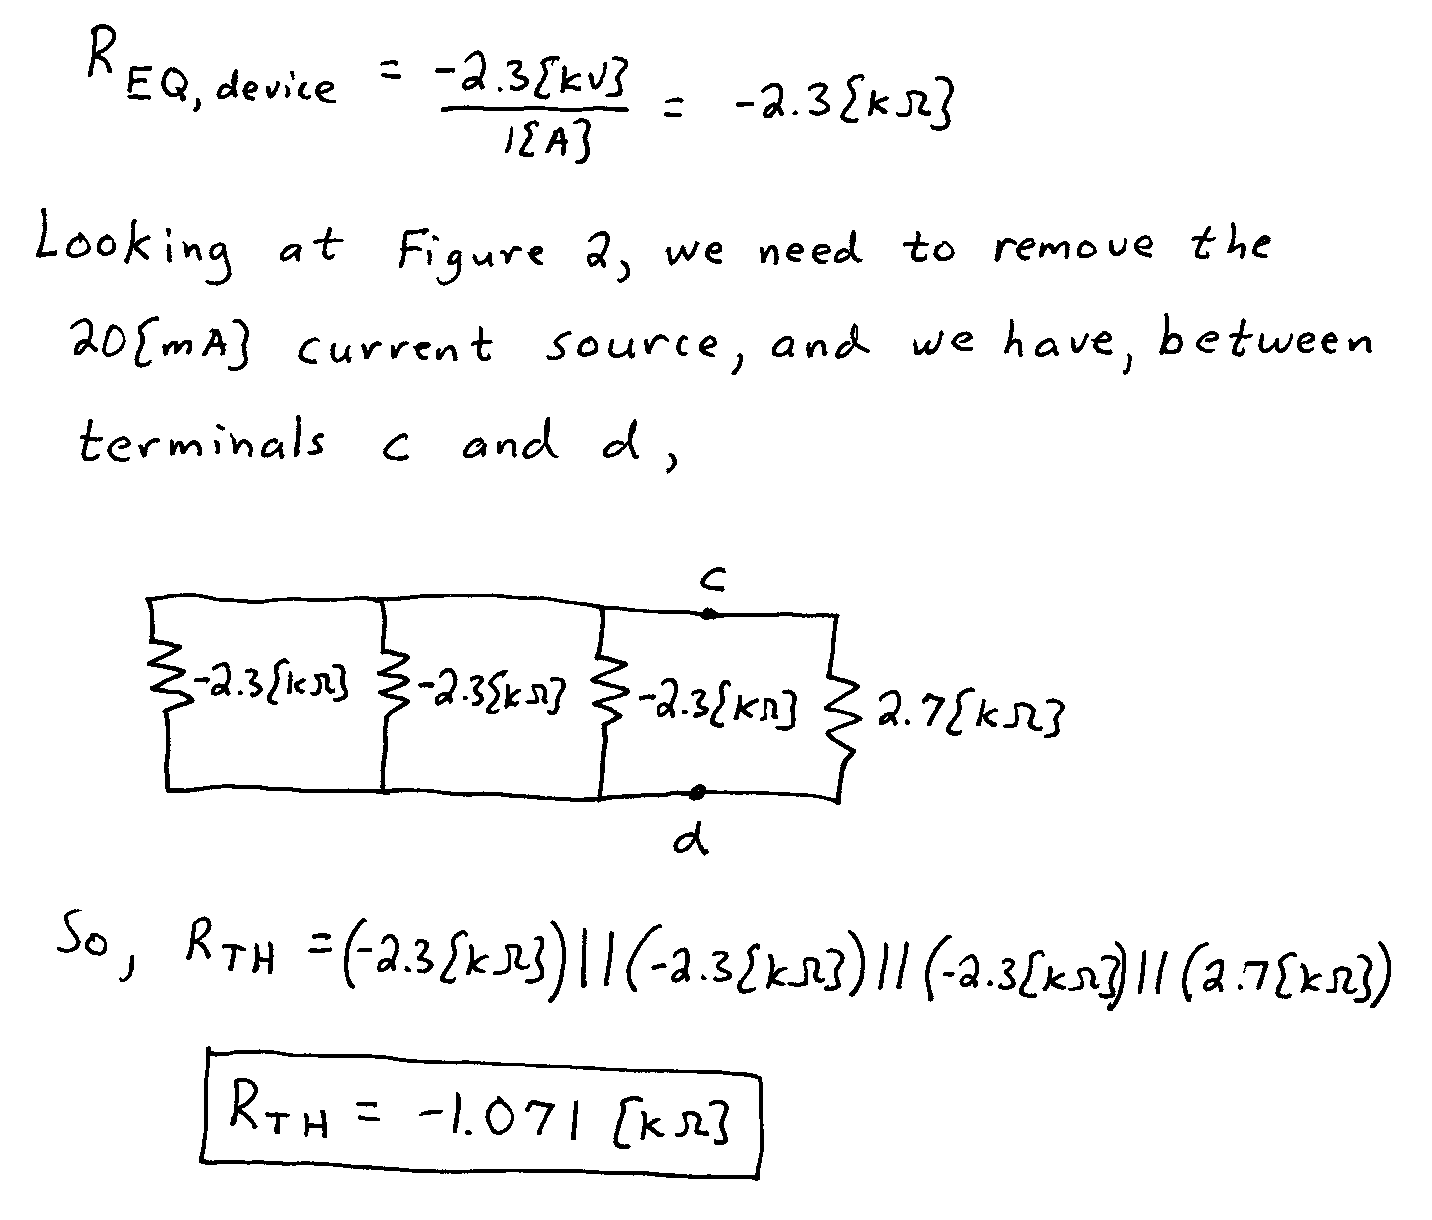 R EQ, device = -2.3{kV} / 1{A} = -2.3{kΩ}
Looking at Figure 2, we need to remove the
20{mA} current source, and we have, between
terminals c and d,
c
-2.3{kΩ} -2.3{kΩ} -2.3{kΩ} 2.7{kΩ}
d
So, RTH = (-2.3{kΩ})||(-2.3{kΩ})||(-2.3{kΩ})||(2.7{kΩ})
RTH = -1.071 [kΩ}